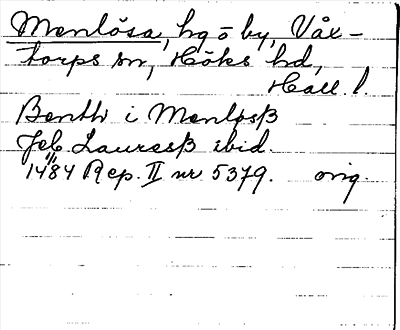 Menlösa, hg o by, Våx-
torps sn, Höks hd,
Hall. l.
Benth i Menløsß
Jeb Lauresß ibid.
1484 Rep. II nr 5379. orig.